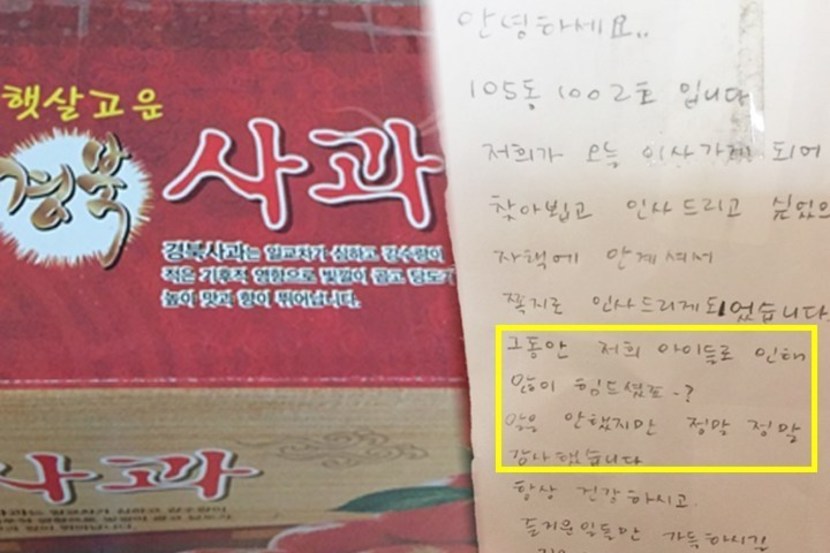 햇살고운
경북
사과
경북사과는 일교차가 심하고 강수량이
적은 기후적 영향으로 빛깔이 곱고 당도가
높이 맛과 향이 뛰어납니다.
사과
안녕하세요..
105동 1002호 입니다
저희가 오늘 이사가게 되어
찾아뵙고 인사드리고 싶었으
자택에 안계셔서
쪽지로 인사드리게되었습니다.
그동안 저희 아이들로 인해
많이 힘드셨죠-?
말은 안했지만 정말 정말
감사했습니다
항상 건강하시고
즐거운일들만 가득하시길